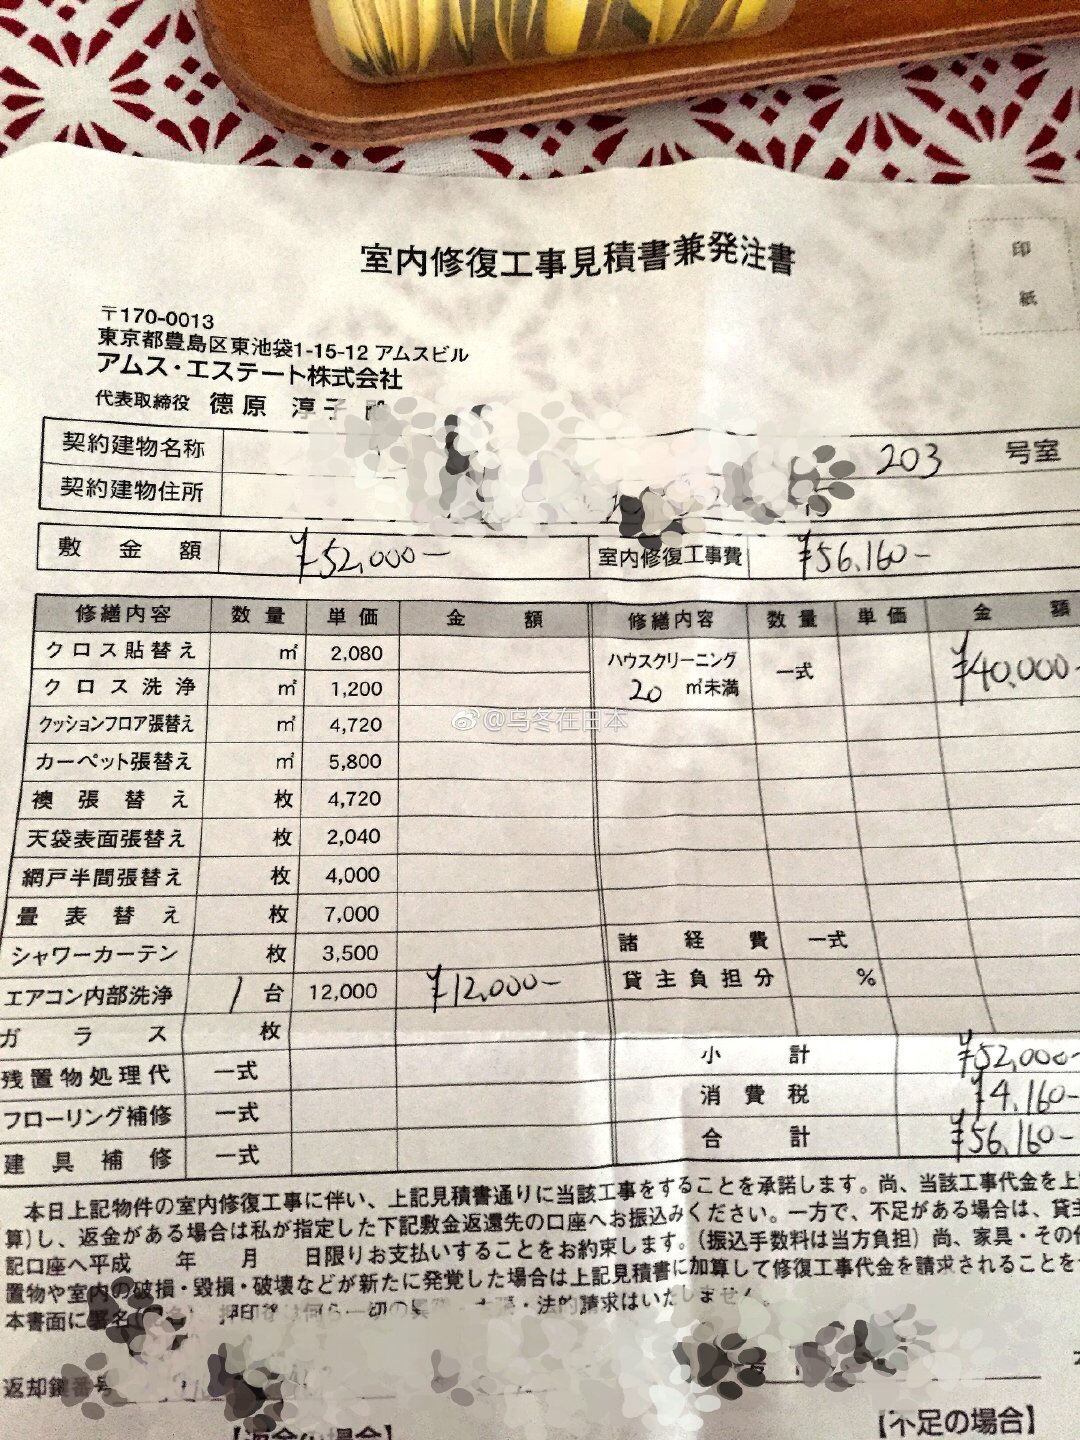 室内修復工事見積書兼発注書
印
紙
〒170-0013
東京都豊島区東池袋1-15-12 アムスビル
アムス・エステート株式会社
代表取締役 德原 淳子 殿
契約建物名称 203 号室
契約建物住所
敷金額 ¥52,000- 室内修復工事費 ¥56,160-
修繕内容 数量 単価 金額 修繕内容 数量 単価 金額
クロス貼替え ㎡ 2,080 ハウスクリーニング 20 ㎡未満 一式 ¥40,000-
クロス洗浄 ㎡ 1,200
クッションフロア張替え ㎡ 4,720
@乌冬在日本
カーペット張替え ㎡ 5,800
襖張替え 枚 4,720
天袋表面張替え 枚 2,040
網戸半間張替え 枚 4,000
畳表替え 枚 7,000 諸経費 一式
シャワーカーテン 枚 3,500 貸主負担分 %
エアコン内部洗浄 1 台 12,000 ¥12,000-
ガラス 枚 小計 ¥52,000-
残置物処理代 一式 消費税 ¥4,160-
フローリング補修 一式 合計 ¥56,160-
建具補修 一式
本日上記物件の室内修復工事に伴い、上記見積書通りに当該工事をすることを承諾します。尚、当該工事代金を上
算)し、返金がある場合は私が指定した下記敷金返還先の口座へお振込みください。一方で、不足がある場合は、貸主
記口座へ平成 年 月 日限りお支払いすることをお約束します。(振込手数料は当方負担）尚、家具・その他
置物や室内の破損・毀損・破壊などが新たに発覚した場合は上記見積書に加算して修復工事代金を請求されることを
本書面に署名 押印後は何ら一切の ・法的請求はいたしません。
返却鍵番号
【返金の場合】 【不足の場合】